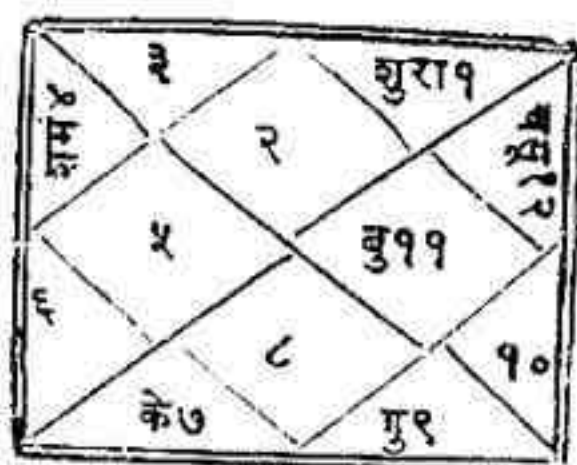 ३
शुरा१
शम४
२
चसू१२
५
बु११
६
८
१०
के७
गु९